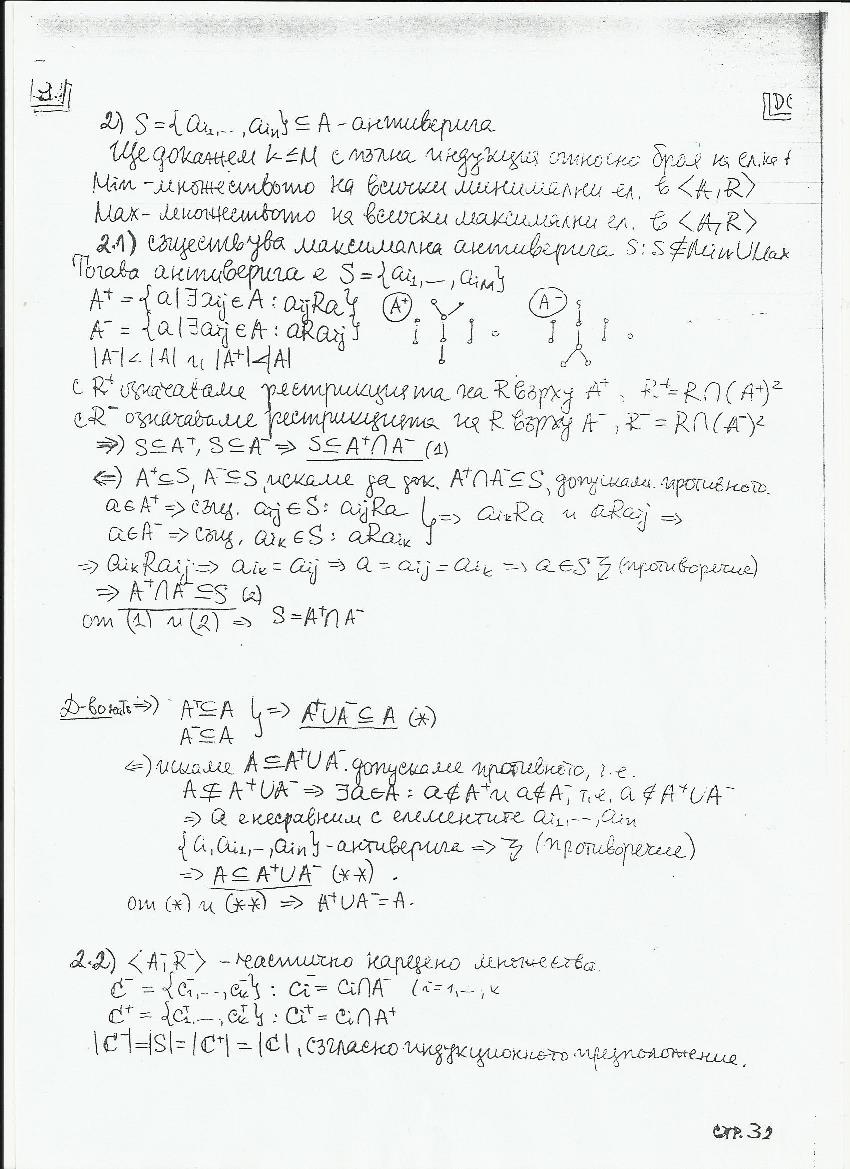 2.1
DC
2) S={ai₁,..,aiₙ}⊆A - антиверига
Ще докажем k≤M с пълна индукция относно броя на ел. на
Min - множеството на всички минимални ел. в <A,R>
Max - множеството на всички максимални ел. в <A,R>
2.1) съществува максимална антиверига S: S⊈Min∪Max
Тогава антиверига е S={ai₁,-,aiм}
A⁺={a|∃aij∈A: aijRa} A⁺ A⁻
A⁻={a|∃aij∈A: aRaij}
|A⁻|<|A| и |A⁺|<|A|
с R⁺ означаваме рестрикцията на R върху A⁺, R⁺=R∩(A⁺)²
с R⁻ означаваме рестрикцията на R върху A⁻, R⁻=R∩(A⁻)²
⇒) S⊆A⁺, S⊆A⁻ ⇒ S⊆A⁺∩A⁻ (1)
⇐) A⁺⊆S, A⁻⊆S, искаме да док. A⁺∩A⁻⊆S, допускаме противното.
a∈A⁺ ⇒ същ. aij∈S: aijRa } ⇒ aikRa и aRaij ⇒
a∈A⁻ ⇒ същ. aik∈S: aRaik
⇒ aikRaij ⇒ aik=aij ⇒ a=aij=aik ⇒ a∈S (противоречие)
⇒ A⁺∩A⁻⊆S (2)
от (1) и (2) ⇒ S=A⁺∩A⁻
⇒) A⁺⊆A } ⇒ A⁺∪A⁻⊆A (*)
A⁻⊆A
⇐) искаме A⊆A⁺∪A⁻. допускаме противното, т.е.
A⊈A⁺∪A⁻ ⇒ ∃a∈A: a∉A⁺ и a∉A⁻, т.е. a∉A⁺∪A⁻
⇒ a е несравним с елементите ai₁,--,aiₙ
{a,ai₁,-,aiₙ} - антиверига ⇒ (противоречие)
⇒ A⊆A⁺∪A⁻ (**).
от (*) и (**) ⇒ A⁺∪A⁻=A.
2.2) <A⁻,R⁻> - частично наредено множества.
C⁻={c₁⁻,..,cₖ⁻}: Ci⁻=Ci∩A⁻ (i=1,..,k
C⁺={c₁⁺,..,cₖ⁺}: Ci⁺=Ci∩A⁺
|C⁻|=|S|=|C⁺|=|C|, съгласно индукционното предположение.
стр. 32